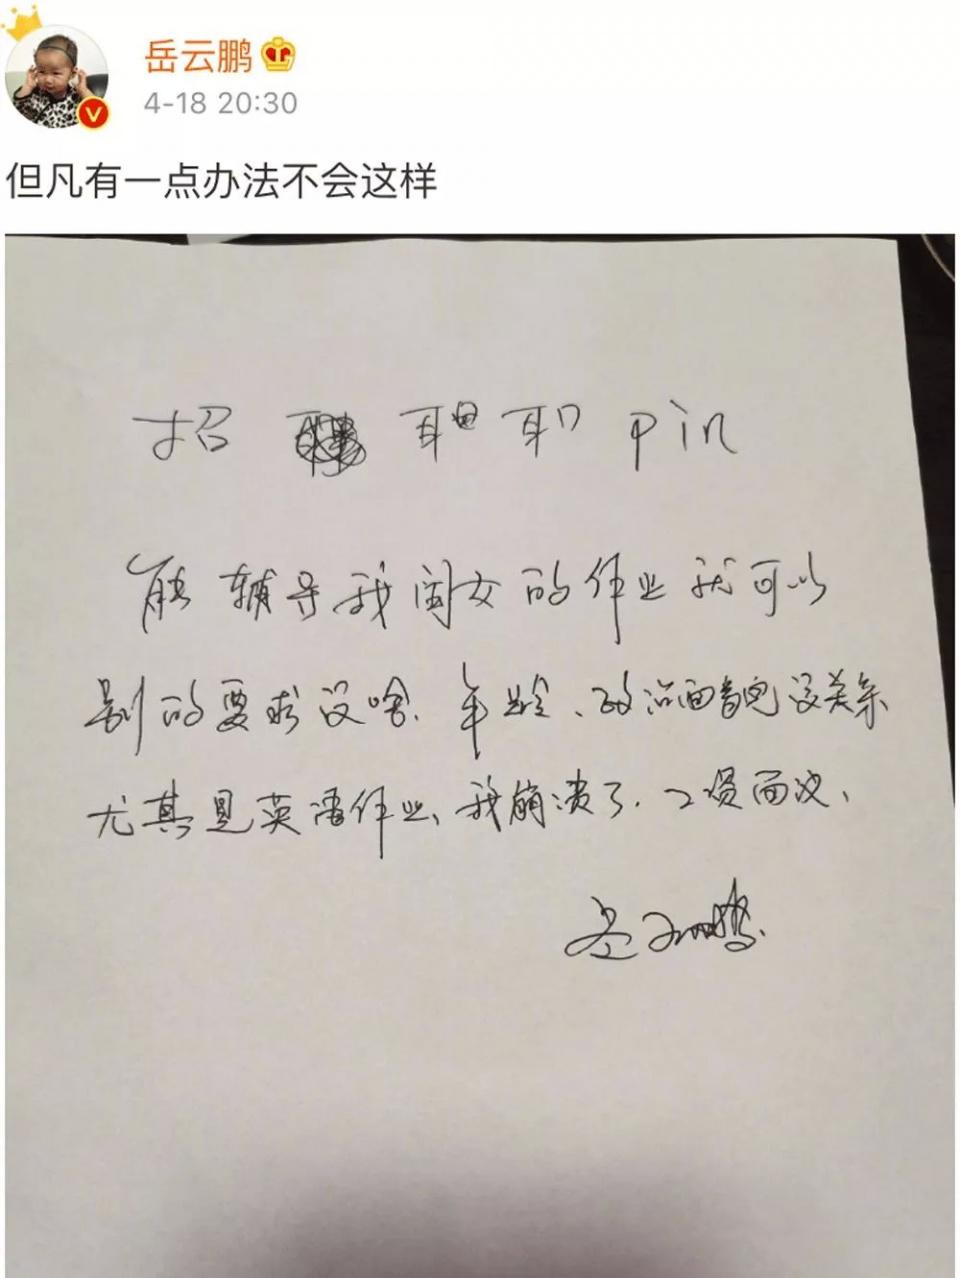 岳云鹏
4-18 20:30
但凡有一点办法不会这样
招 pin
能辅导我闺女的作业就可以
别的要求没啥、年龄、政治面貌没关系
尤其是英语作业、我崩溃了、工资面议、
岳云鹏